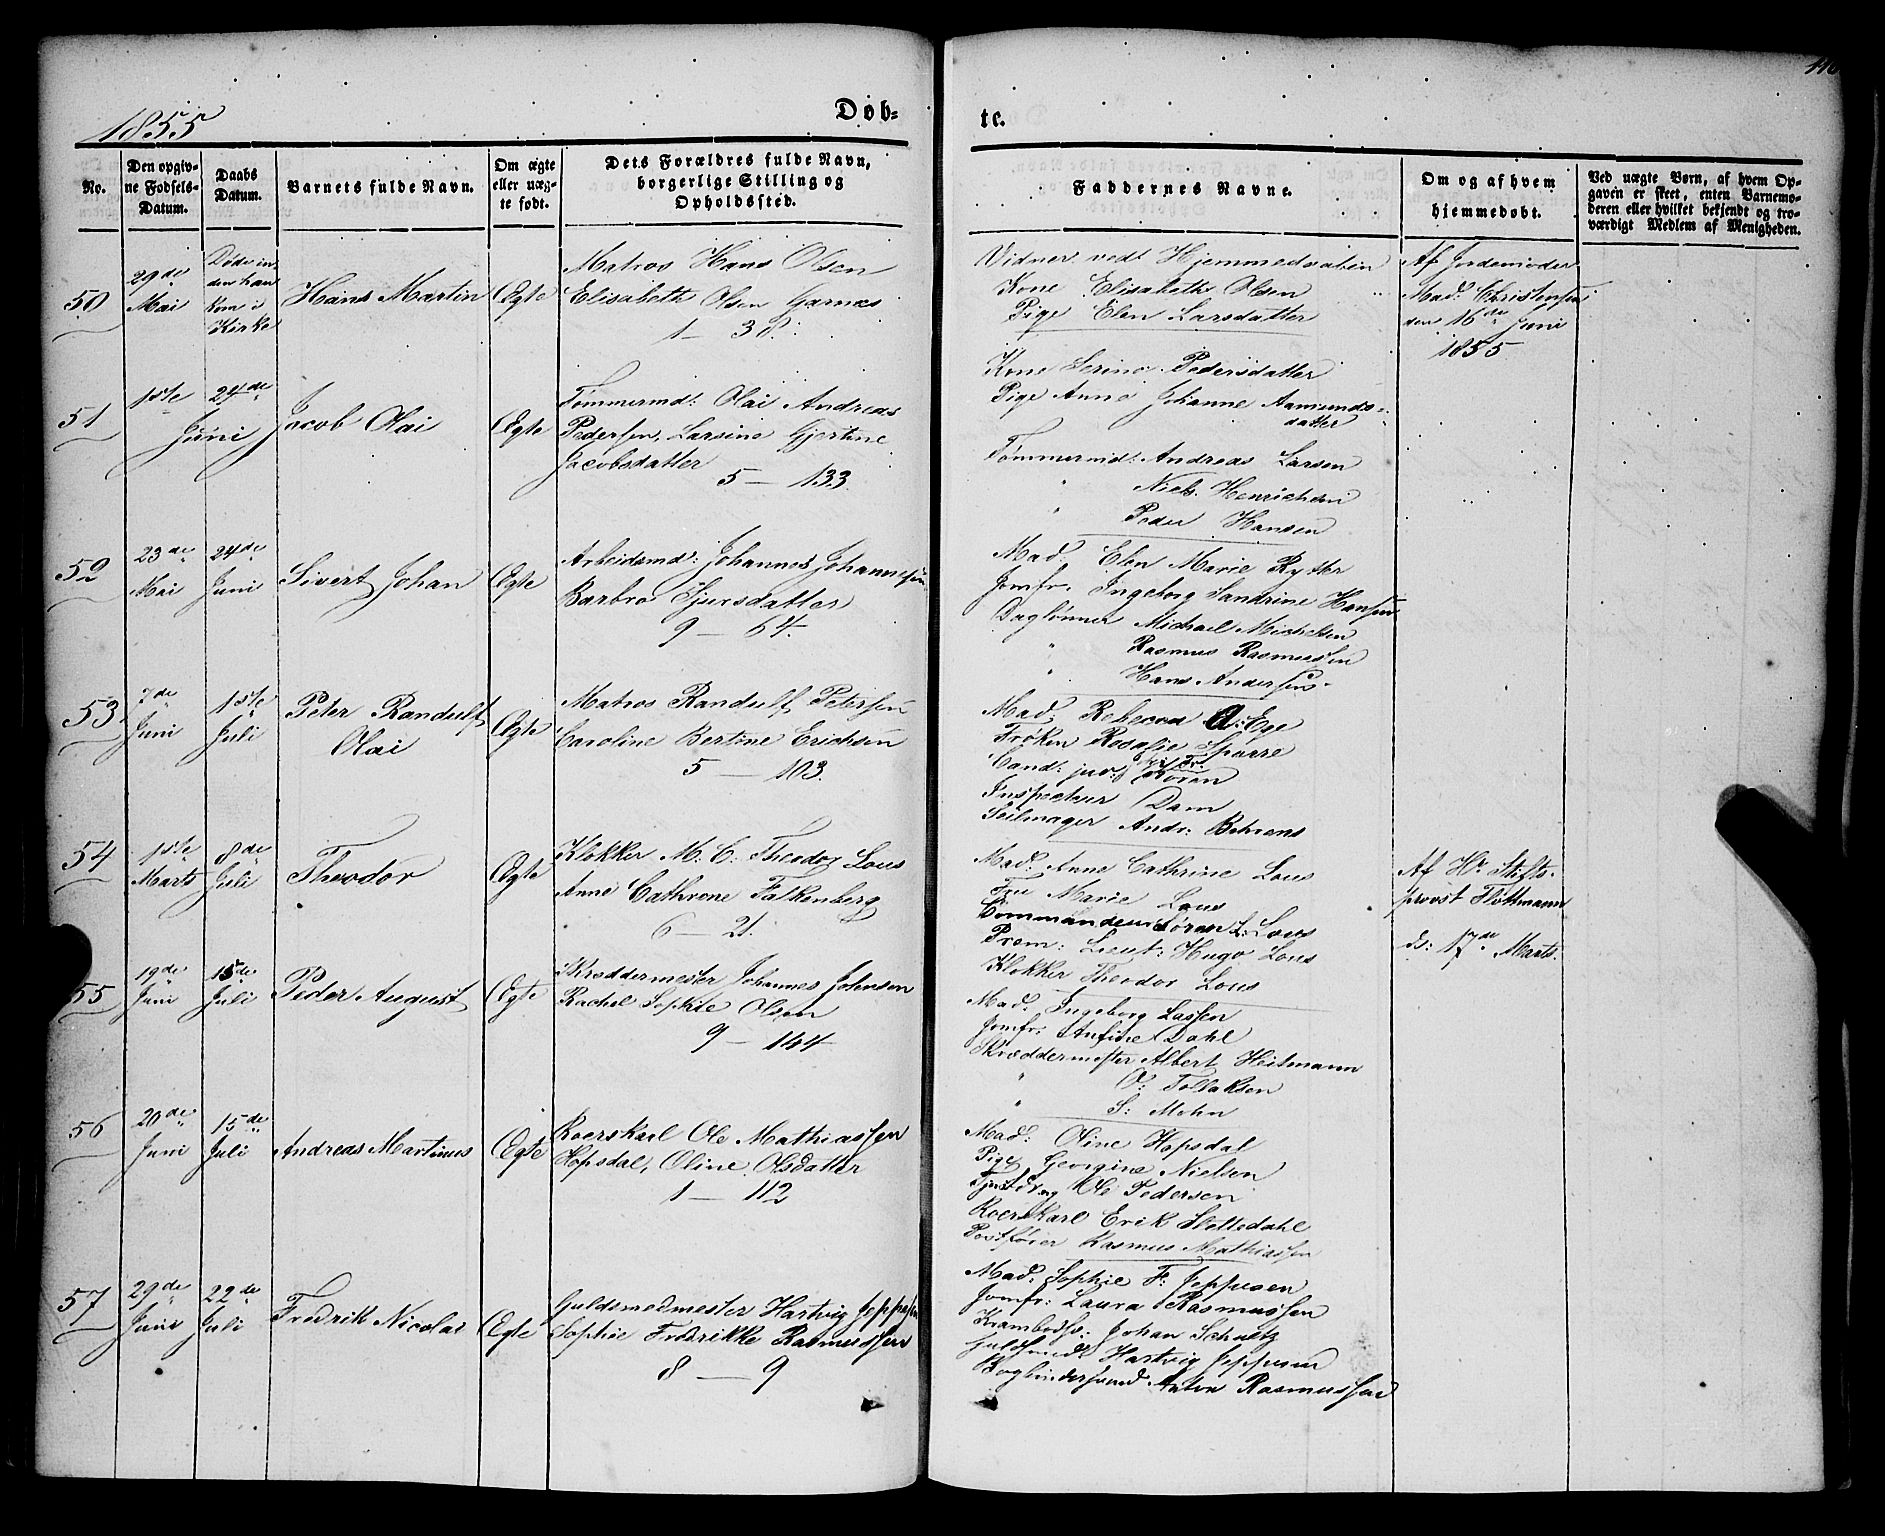 146
1855
Døb-
te.
No.
Den opgiv-
ne Fødsels-
Datum.
Daabs
Datum.
Barnets fulde Navn.
Om ægte
eller uæg-
te født.
Dets Forældres fulde Navn,
borgerlige Stilling og
Opholdssted.
Faddernes Navne.
Om og af hvem
hjemmedøbt.
Ved uægte Børn, af hvem Op-
gaven er skeet, enten Barnemo-
deren eller hvilket bekjendt og tro-
værdigt Medlem af Menigheden.
50
29de
Mai
Døde in-
den han
kom i
Kirke
Hans Martin
Ægte
Matros Hans Olsen
Elisabeth Olsen Garnæs
1 - 38.
Vidner ved Hjemmedaaben
Kone Elisabeth Olsen
Pige Elen Larsdatter
Af Jordemoder
Mad: Christensen
den 16de Juni
1855
51
1ste
24de
Juni
Jacob Olai
Ægte
Tømmermd: Olai Andreas
Pedersen, Larsine Gjertine
Jacobsdatter
5 - 133.
Kone Serina Pedersdatter
Pige Anne Johanne Aamunds-
datter
Tømmermd: Andreas Larsen
" Niels Henrichsen
" Peder Hansen
52
23de
Mai
24de
Juni
Sivert Johan
Ægte
Arbeidsmd: Johannes Johannesen
Barbro Sjursdatter
9 - 64.
Mad. Elen Marie Rytter
Jomfr. Ingeborg Sandrine Hansen
Daglønner Michael Michelsen
" Rasmus Rasmussen
" Hans Andersen
53.
7de
Juni
1ste
Juli
Peter Randulf
Olai
Ægte
Matros Randulf Petersen
Caroline Bertine Erichsen
5 - 103.
Mad. Rebecca A: Ege
Frøken Rosalie Sparre
Cand: jur. Koren
Inspecteur Dam
Seilmager Andr: Behrens
54
1ste
Marts
8de
Juli
Theodor
Ægte
Klokker M. C. Theodor Lous
Anne Cathrone Falkenberg
6 - 21.
Mad. Anne Cathrine Lous
Fru Marie Lous
Commandeur Søren L: Lous
Prem: Lieut: Hugo Lous
Klokker Theodor Lous
Af Hr Stifts-
provst Flothmann
ds: 17de Marts.
55
19de
Juni
15de
Juli
Peder August
Ægte
Skræddermester Johannes Johnsen
Rachel Sophie Olsen
9 - 144
Mad. Ingeborg Lassen
Jomfr: Anfine Dahl
Skræddermester Albert Heitmann
" O: Tollaksen
" S: Mohn
56
20de
Juni
15de
Juli
Andreas Martinus
Ægte
Roerskarl Ole Mathiassen
Hopsdal, Oline Olsdatter
1 - 112
Mad: Oline Hopsdal
Pige Georgine Nielsen
Ole Pedersen
Roerskarl Erik Slettedahl
Postfører Rasmus Mathiassen
57
29de
Juni
22de
Juli
Fredrik Nicolai
Ægte
Guldsmedmester Hartvig Jeppesen
Sophie Fredrikke Rasmussen
8 - 9
Mad. Sophie F: Jeppesen
Jomfr: Laura Rasmussen
Krambods: Johan Schultz
Guldsmed Hartvig Jeppesen
Bogbindersvend Anton Rasmussen